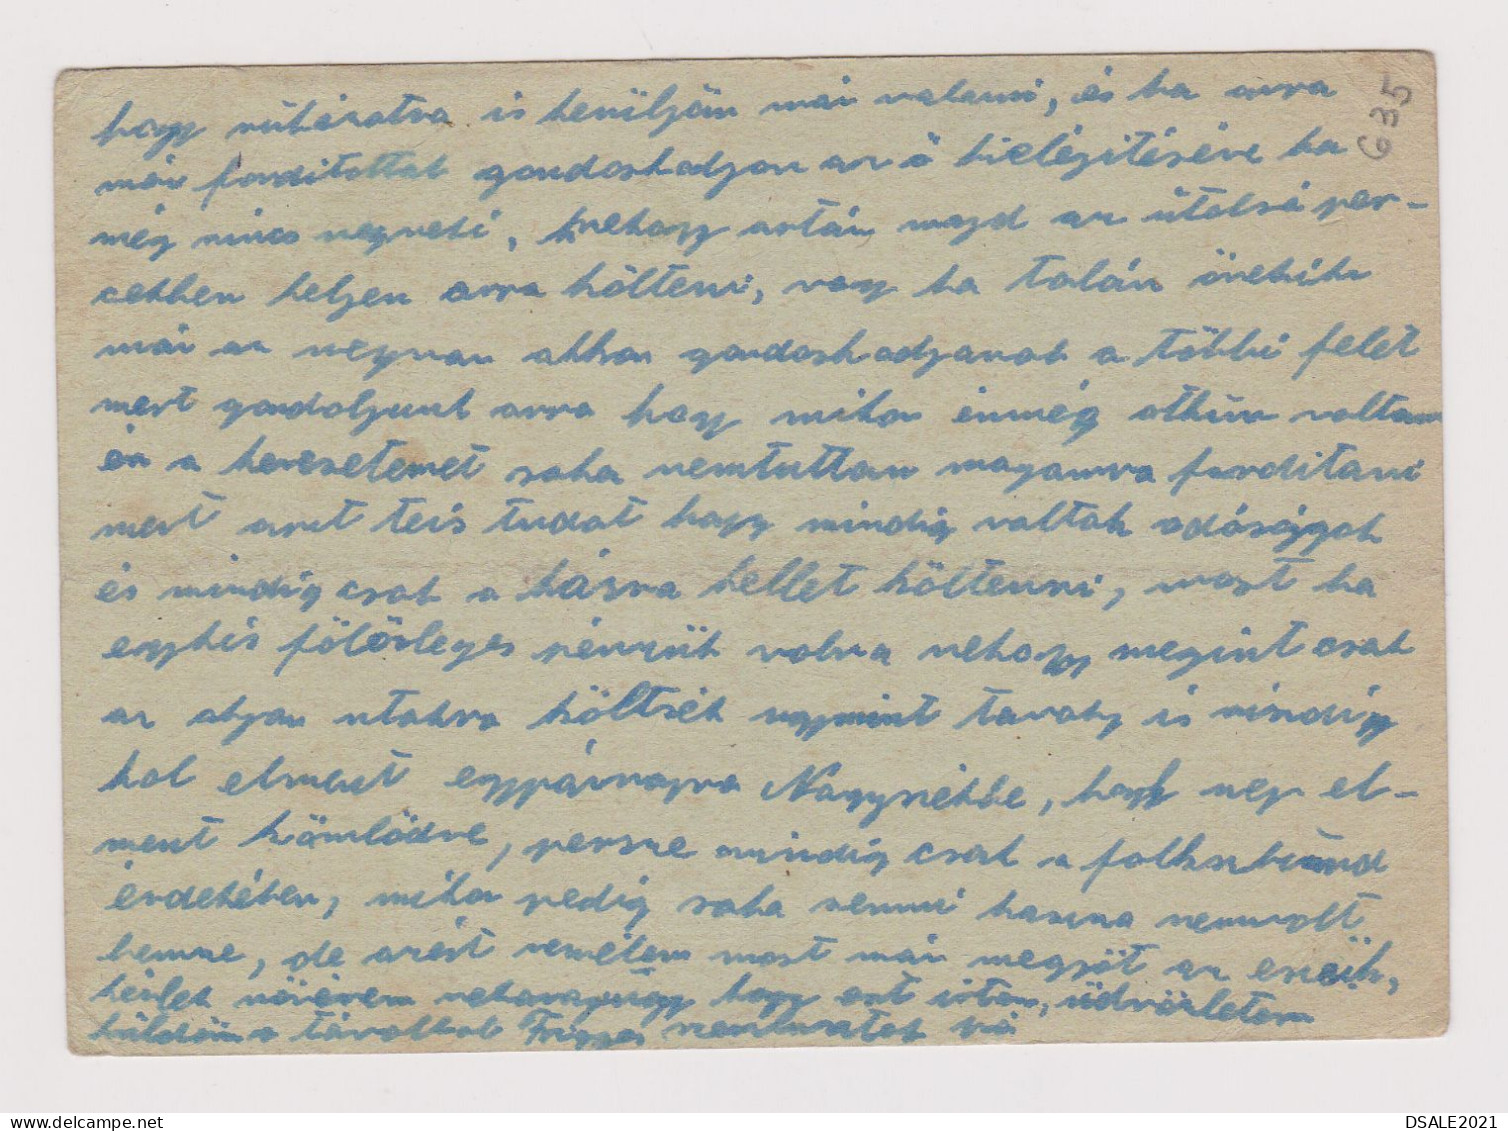 hogy ruházatra is kerüljön már valami, és ha arra
már fordítottak gondoskodjon az ő kielégitésére ha
még nincs negyedi, nehogy aztán majd az útolsó per-
cekben keljen arra költeni, vagy ha talán önekik
már az megvan akkor gondoskodjanak a többi felet
mert gondoljunk arra hogy mikor énmég othun voltam
én a keresetemet soha nemtuttam magamra forditani
mert azt teis tudot hogy mindig voltak adóságok
és mindig csak a házra kellet költenni, most ha
egykis fölösleges pénzük volna nehogy megint csak
az olyan utakra költsék ugymint tavaly is mindíg
hol elment egypárnapra Nagyszékbe, hogy
ment kömlödre, persze mindíg csak a folksbund
érdekében, mikor pedig soha semmi haszna nemvolt
benne, de azért remélem most már megjöt az eszük,
kérlek nővérem neharagugy hogy ezt irtam, üdvözletem
küldöm a távolból Frigyes
635
DSALE2021